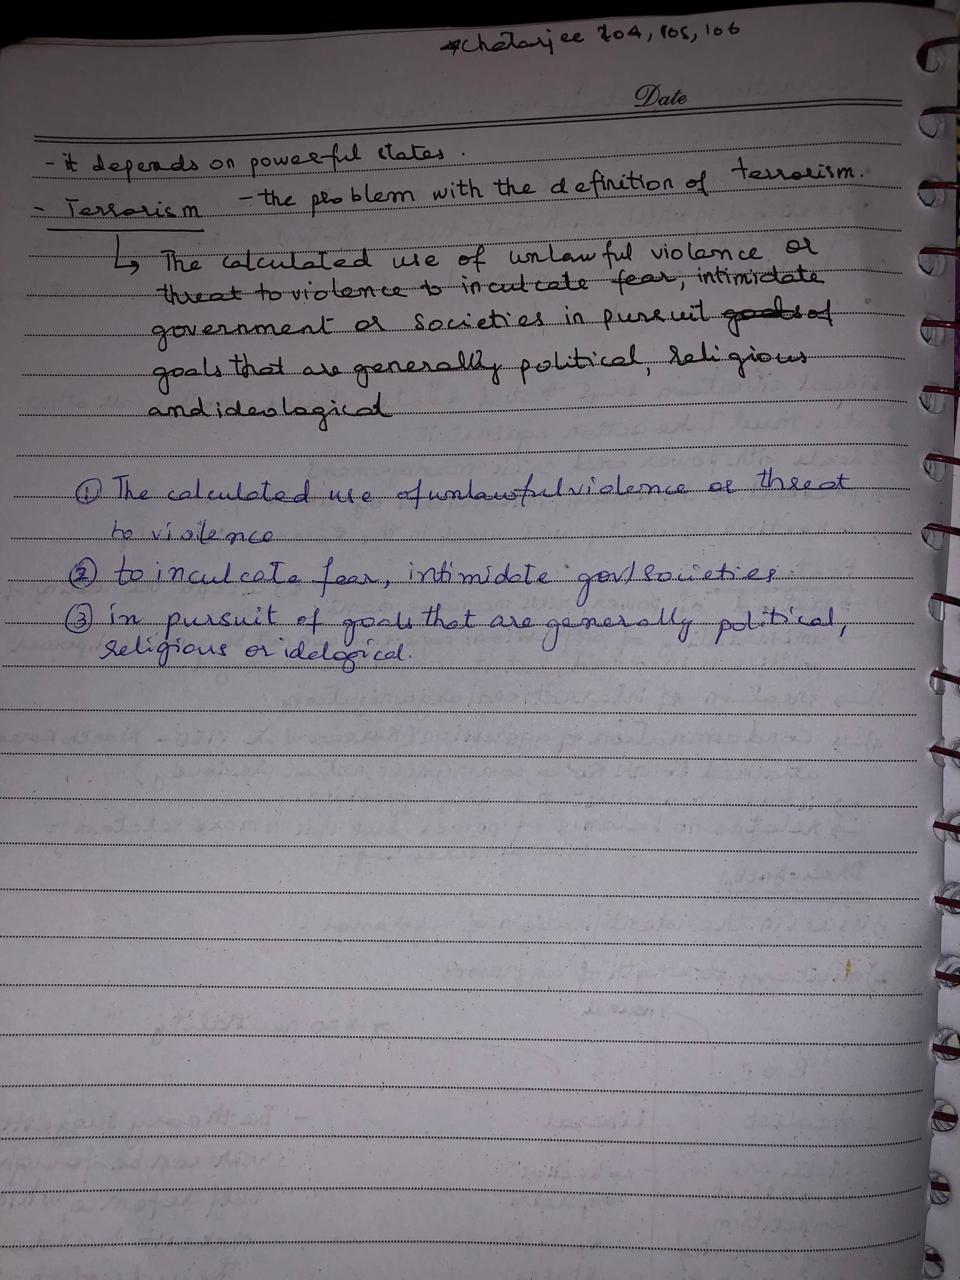 *Chatarjee 104, 105, 106
Date
- it depends on powerful states.
- Terrorism - the problem with the definition of terrorism.
↳ The calculated use of unlawful violence or
threat to violence to incutcate fear, intimidate
government or societies in pursuit goals of
goals that are generally political, religious
and ideological
① The calculated use of unlawful violence or threat
to violence
② to inculcate fear, intimidate gov/societies.
③ in pursuit of goals that are generally political,
religious or idelogical.